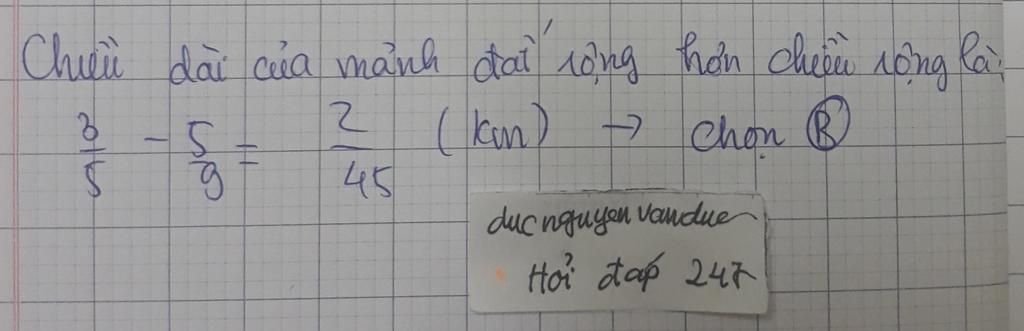 Chiều dài của mảnh đất rộng hơn chiều rộng là:
3/5 - 5/9 = 2/45 (km) → chọn Ⓑ
ducnguyenvanduc
Hỏi đáp 247